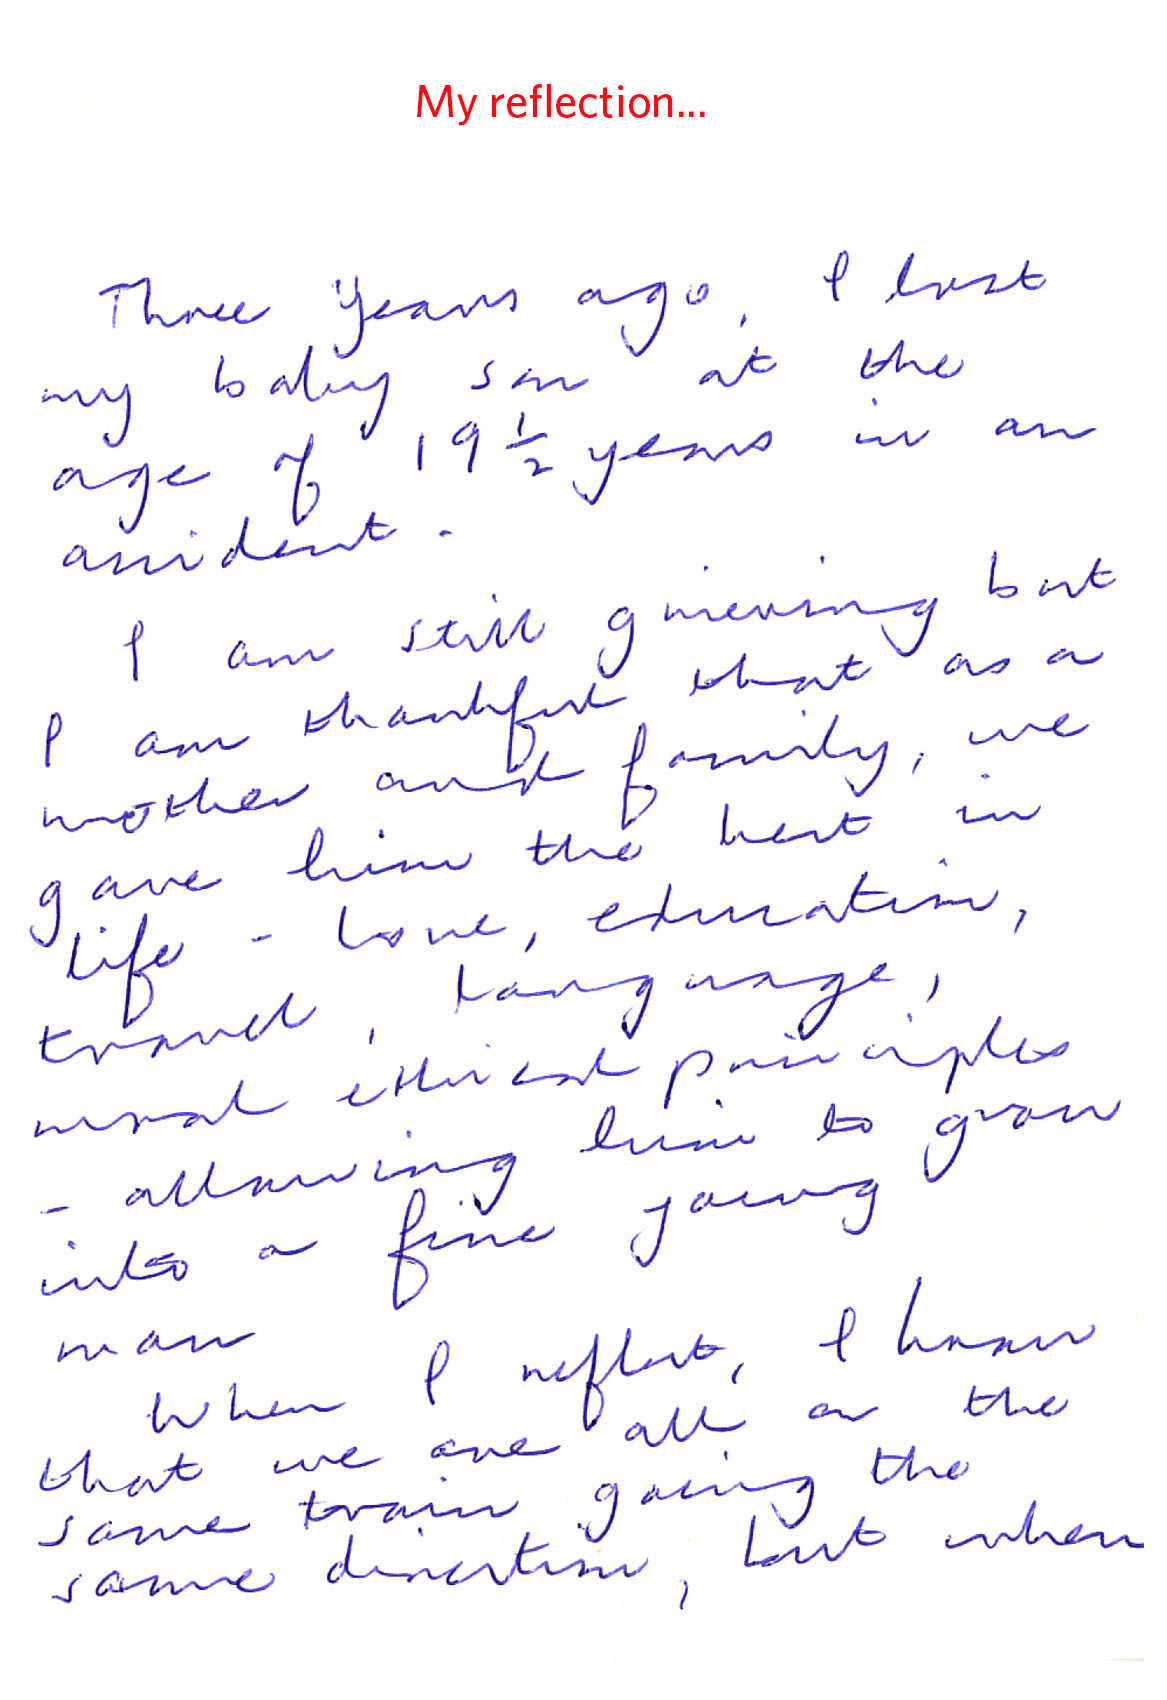 My reflection...
Three years ago, I lost
my baby son at the
age of 19 ½ years in an
accident.
I am still grieving but
I am thankful that as a
mother and family, we
gave him the best in
life - love, education,
travel, language,
moral ethical principles
- allowing him to grow
into a fine young
man
When I reflect, I know
that we are all on the
same train going the
same direction, but when